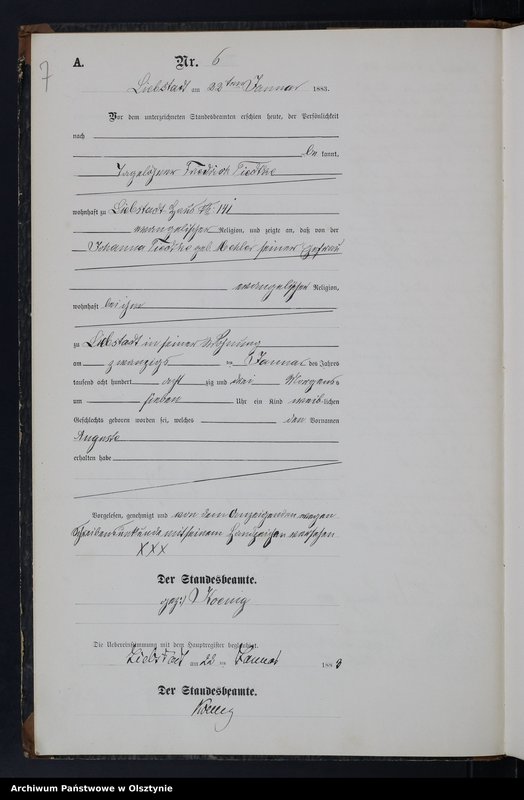 7
A. Nr. 6
Liebstadt am 22ten Januar 1883.
Vor dem unterzeichneten Standesbeamten erschien heute, der Persönlichkeit
nach
be kannt,
Tagelöhner Friedrich Tiedtke
wohnhaft zu Liebstadt Haus №
evangelischer Religion, und zeigte an, daß von der
Johanna Tiedtke geb. seiner Ehefrau
evangelischer Religion,
wohnhaft bei ihm
zu Liebstadt in seiner Wohnung
am zwanzigs ten Januar des Jahres
tausend acht hundert acht zig und drei Morgens
um sieben Uhr ein Kind weib-lichen
Geschlechts geboren worden sei, welches den Vornamen
Auguste
erhalten habe
Vorgelesen, genehmigt und von dem Anzeigenden wegen
Schreibensunkunde mit seinem Handzeichen versehen
XXX
Der Standesbeamte.
gez: Koenig
Die Uebereinstimmung mit dem Hauptregister beglaubigt.
Liebstadt am 22 ten Januar 1883
Der Standesbeamte.
Koenig
Archiwum Państwowe w Olsztynie